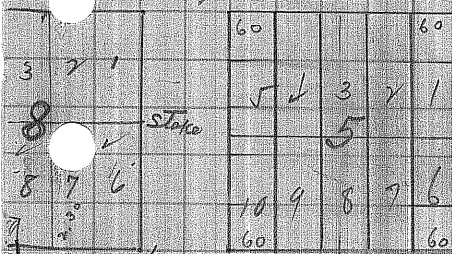 60 60
3 2 1
5 4 3 2 1
8
Stake
5
8 7 6
10 9 8 7 6
60 60